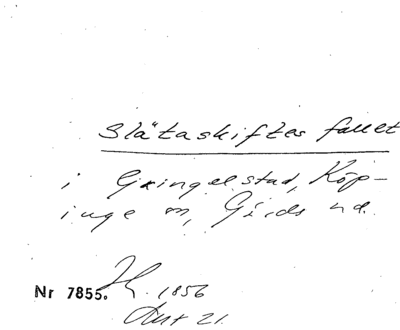 Slätaskiftesfallet
i Gringelstad, Köp-
inge sn, Gärds hd.
Nr 7855. 1856
21.